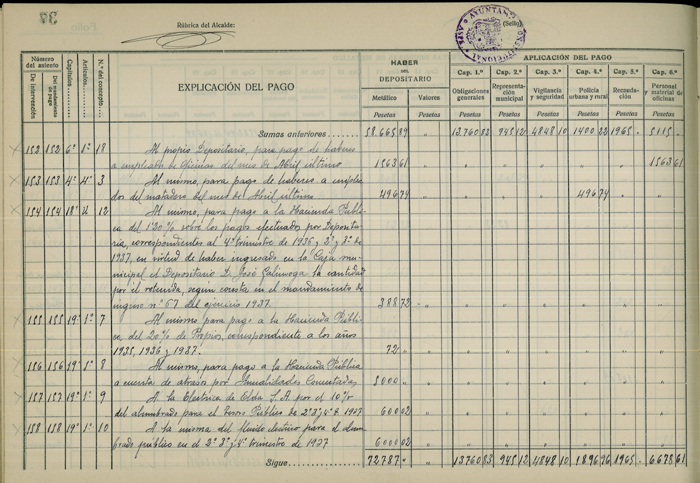 37
Rúbrica del Alcalde:
AYUNTAMIENTO CONSTITUCIONAL
(Sello)
Número del asiento
De intervención
Del mandamiento de pago
Capítulos
Artículos
N.º del concepto
EXPLICACIÓN DEL PAGO
HABER DEL DEPOSITARIO
Metálico
Valores
Pesetas Pesetas
APLICACIÓN DEL PAGO
Cap. 1.º Cap. 2.º Cap. 3.º Cap. 4.º Cap. 5.º Cap. 6.º
Obligaciones generales
Representación municipal
Vigilancia y seguridad
Policía urbana y rural
Recaudación
Personal y material de oficinas
Pesetas Pesetas Pesetas Pesetas Pesetas Pesetas
Sumas anteriores 58.665 89 " 13760 83 945 12 4848 10 1400 22 1965 - 5115 -
152 152 6º 1º 18 Al propio Depositario, para pago de haberes
a empleados de oficinas del mes de Abril último 1563 61 1563 61
153 153 4º 4º 3 Al mismo, para pago de haberes a emplea-
dos del matadero del mes de Abril último 496 74 496 74
154 154 18º 12 Al mismo, para pago a la Hacienda Públi-
ca del 1'20% sobre los pagos efectuados por Deposita-
ría, correspondientes al 4º trimestre de 1936 y 2º y 3º de
1937, en virtud de haber ingresado en la Caja mu-
nicipal el Depositario D. José la cantidad
por él retenida, según consta en el mandamiento de
ingreso nº 67 del ejercicio 1937. 388 72
155 155 19º 1º 7 Al mismo, para pago a la Hacienda Públi-
ca del 20% de Propios, correspondiente a los años
1935, 1936 y 1937. 72 "
156 156 19º 1º 8 Al mismo, para pago a la Hacienda Pública
a cuenta de atrasos por Anualidades Concertadas 5000 "
157 157 19º 1º 9 A la Eléctrica de Elda S.A por el 10%
del alumbrado para el Tesoro Público de 2º 3º y 4º T. 1937 600 02
158 158 19º 1º 10 A la misma del fluido eléctrico para el alum-
brado público en el 2º 3º y 4º trimestre de 1937 6000 02
Sigue 72787 " 13760 83 945 12 4848 10 1896 96 1965 - 6678 61